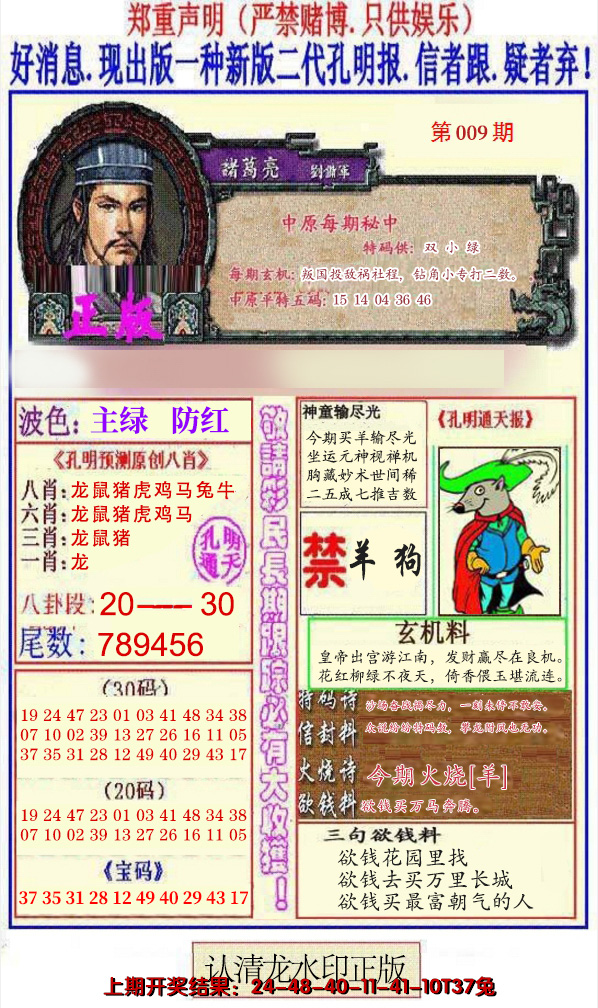 郑重声明（严禁赌博.只供娱乐）
好消息.现出版一种新版二代孔明报.信者跟.疑者弃！
第009期
諸葛亮 劉備軍
中原每期秘中
特码供：双小绿
每期玄机：叛国投敌祸社程，钻角小专打二数。
中原平特五码：15 14 04 36 46
正版
波色：主绿 防红
《孔明预测原创八肖》
八肖：龙鼠猪虎鸡马兔牛
六肖：龙鼠猪虎鸡马
三肖：龙鼠猪
一肖：龙
孔明
通天
八卦段：20——30
尾数：789456
(30码)
19 24 47 23 01 03 41 48 34 38
07 10 02 39 13 27 26 16 11 05
37 35 31 28 12 49 40 29 43 17
(20码)
19 24 47 23 01 03 41 48 34 38
07 10 02 39 13 27 26 16 11 05
《宝码》
37 35 31 28 12 49 40 29 43 17
敬請彩民長期跟踪必有大收獲！
神童输尽光
今期买羊输尽光
坐运元神视禅机
胸藏妙术世间稀
二五成七推吉数
《孔明通天报》
禁羊狗
玄机料
皇帝出宫游江南，发财赢尽在良机。
花红柳绿不夜天，倚香偎玉堪流连。
特码诗 沙场奋战竭尽力，一刻未停不敢妄。
信封料 众说纷纷特码数，攀龙附凤也无功。
火烧诗 今期火烧[羊]
欲钱料 欲钱买万马奔腾。
三句欲钱料
欲钱花园里找
欲钱去买万里长城
欲钱买最富朝气的人
认清龙水印正版
上期开奖结果：24-48-40-11-41-10T37兔